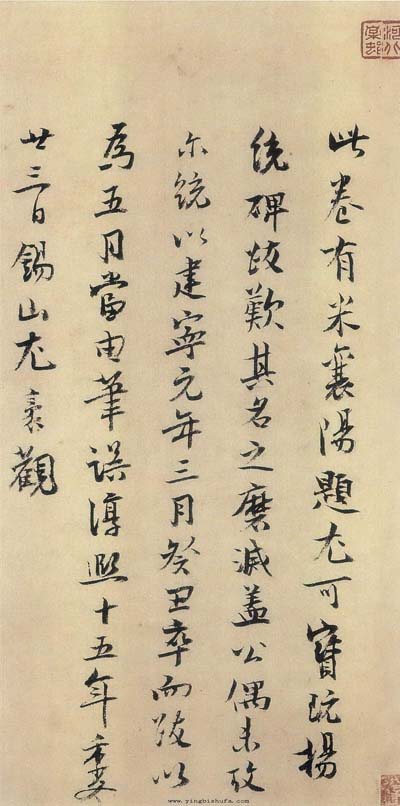 河北棠邨
此卷有米襄陽題尤可寶玩楊
統碑跋歎其名之磨滅蓋公偶未攷
尔統以建寧元年三月癸丑卒而跋以
爲五月當由筆誤淳熙十五年季夏
廿三日錫山尤袤觀
www.yingbishufa.com